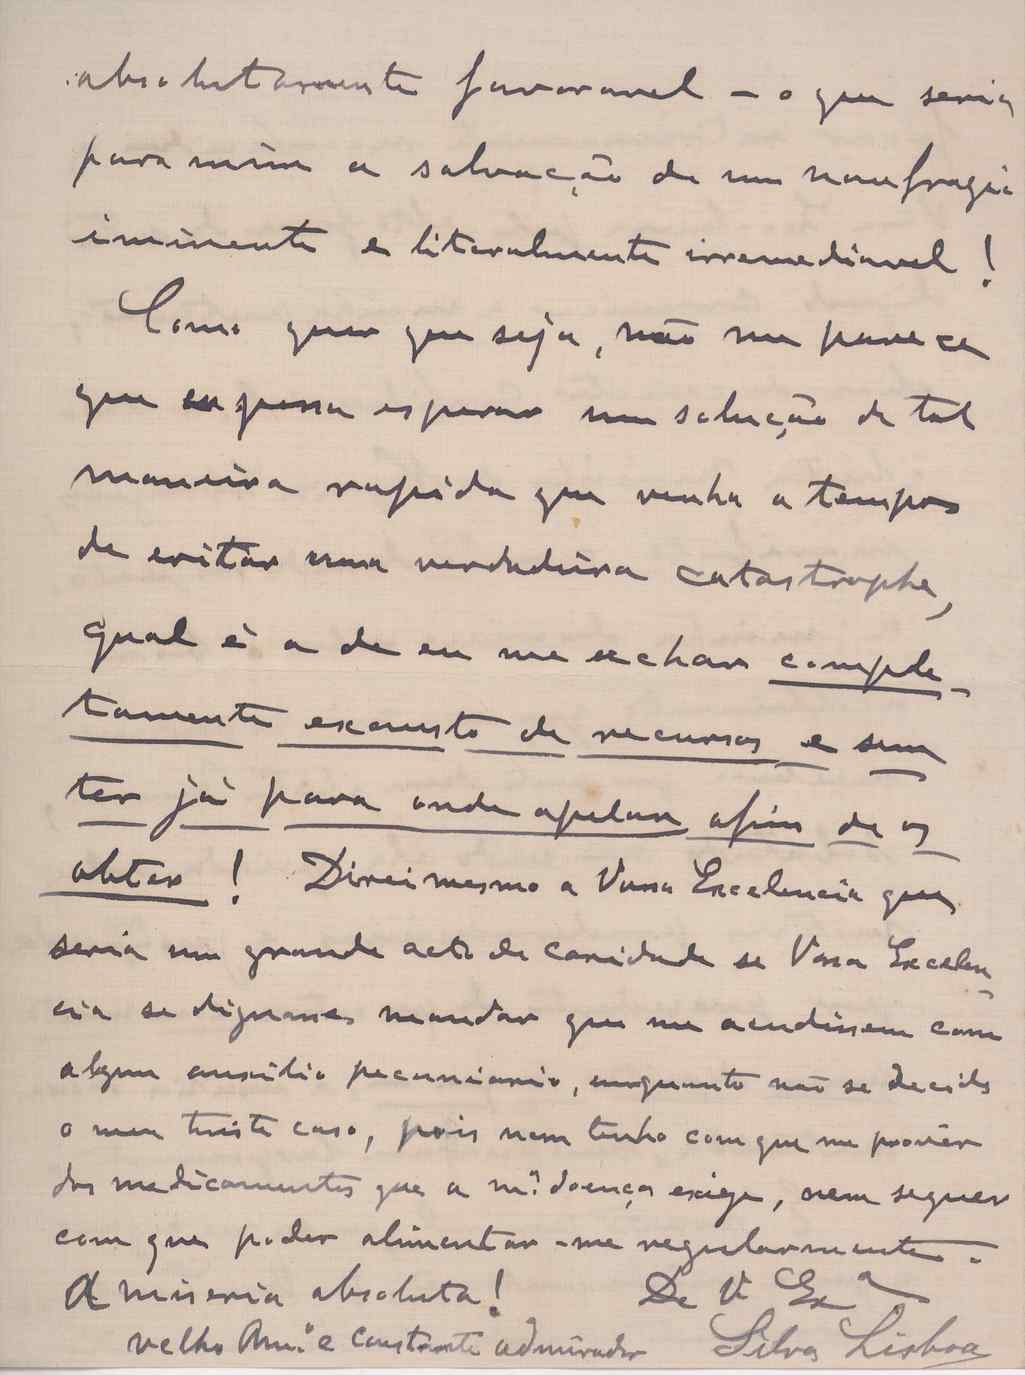 absolutamente favoravel – o que seria
para mim a salvação de um naufragio
iminente e literalmente irremediavel!
Como quer que seja, não me parece
que eu possa esperar uma solução de tal
maneira rapida que venha a tempo
de evitar uma verdadeira catastrophe,
qual é a de eu me achar comple-
tamente exausto de recursos e sem
ter já para onde apelar afim de os
obter! Direi mesmo a Vossa Excelencia que
seria um grande acto de caridade se Vossa Excelen-
cia se dignasse mandar que me acudissem com
algum auxilio pecuniario, emquanto não se decide
o meu triste caso, pois nem tenho com que me provêr
dos medicamentos que a m.ª doença exige, nem sequer
com que poder alimentar-me regularmente.
A miseria absoluta! De V. Ex.ª
velho Am.º e constante admirador Silva Lisboa